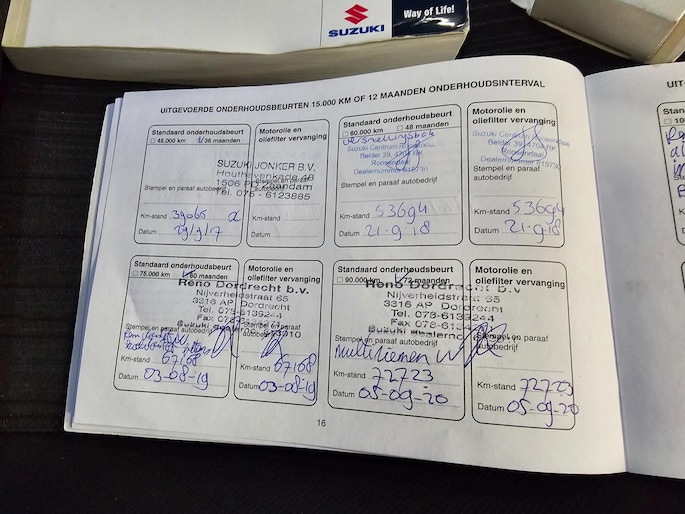 SUZUKI
Way of Life!
UITGEVOERDE ONDERHOUDSBEURTEN 15.000 KM OF 12 MAANDEN ONDERHOUDSINTERVAL
Standaard onderhoudsbeurt
□ 45.000 km 36 maanden
SUZUKI JONKER B.V.
Stempel en paraaf autobedrijf
Km-stand 39065
Datum 29/9/17
Motorolie en
oliefilter vervanging
Stempel en paraaf
autobedrijf
Km-stand
Datum
Standaard onderhoudsbeurt
□ 60.000 km □ 48 maanden
versnellingsbak
Suzuki Centrum Roosendaal
Belder 39, 4704 RK
Roosendaal
Stempel en paraaf autobedrijf
Km-stand 53694
Datum 21-9-18
Motorolie en
oliefilter vervanging
Suzuki Centrum
Belder 39, 4704 RK
Roosendaal
Stempel en paraaf
autobedrijf
Km-stand 53694
Datum 21-9-18
Standaard onderhoudsbeurt
□ 75.000 km 60 maanden
Reno Dordrecht b.v.
Nijverheidstraat 65
3316 AP Dordrecht
Tel. 078-6139244
Stempel en paraaf autobedrijf
Km-stand 67168
Datum 03-08-19
Motorolie en
oliefilter vervanging
Stempel en paraaf
autobedrijf
Km-stand 67168
Datum 03-08-19
Standaard onderhoudsbeurt
□ 90.000 km 72 maanden
Reno Dordrecht b.v
Nijverheidstraat 65
3316 AP Dordrecht
Tel. 078-6139244
Stempel en paraaf autobedrijf
multiriemen
Km-stand 72723
Datum 05-09-20
Motorolie en
oliefilter vervanging
Stempel en paraaf
autobedrijf
Km-stand 72723
Datum 05-09-20
16